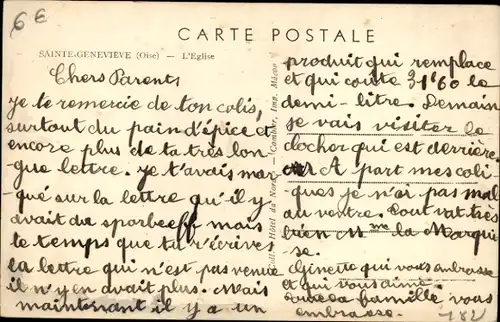 6€
CARTE POSTALE
SAINTE-GENEVIÈVE (Oise) — L'Eglise
Chers Parents
je te remercie de ton colis,
surtout du pain d'épice et
encore plus de ta très lon-
gue lettre. je t'avais mar-
qué sur la lettre qu'il y
avait du sporbeeff mais
le temps que tu t'écrives
la lettre qui n'est pas venue
il n'y en avait plus. Mais
maintenant il y a un
Hôtel du Nord. — Combier, Imp. Mâcon
produit qui remplace
et qui coute 31f60 le
demi-litre. Demain
je vais visiter le
clocher qui est derrière
A part mes coli-
ques je n'ai pas mal
au ventre. Tout va très
bien Mme la Marqui-
se.
Ginette qui vous embrasse
et qui vous aime
famille vous
embrasse.
182